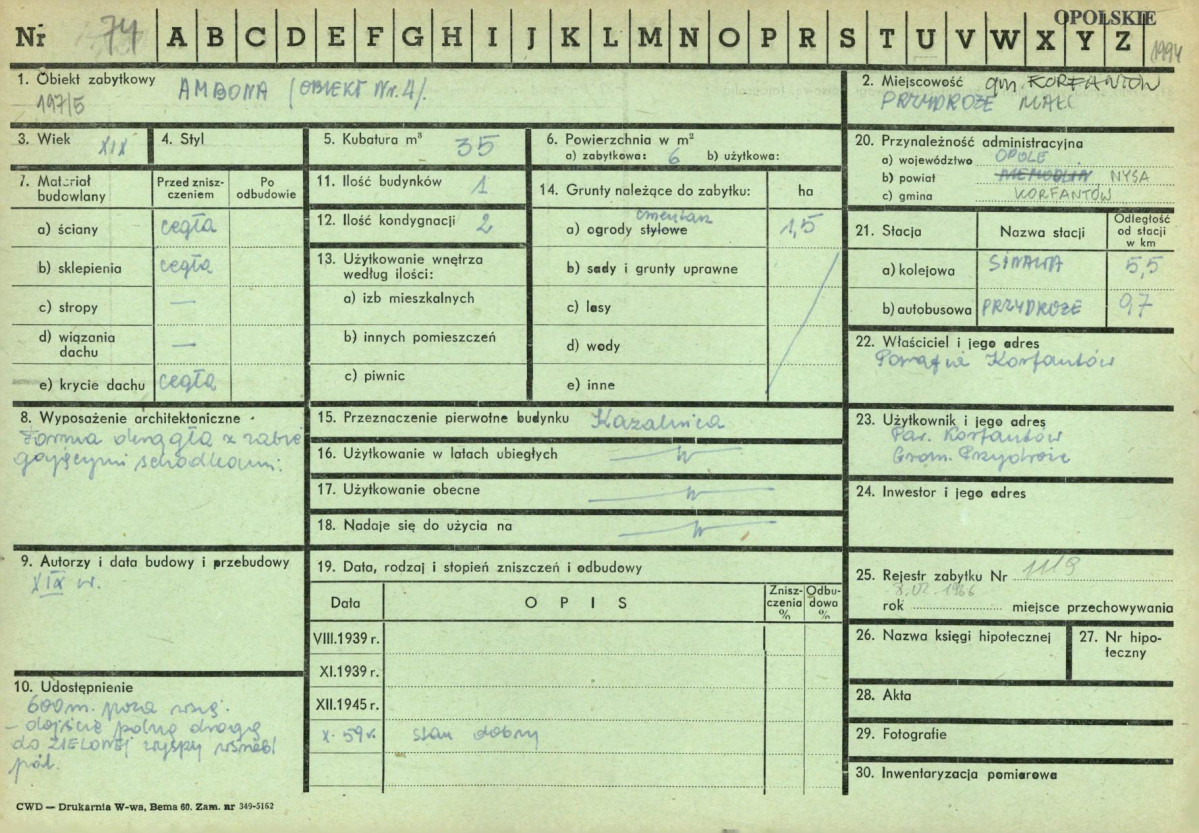 OPOLSKIE
Nr 74 A B C D E F G H I J K L M N O P R S T U V W X Y Z 1994
1. Obiekt zabytkowy AMBONA (OBIEKT Nr. 4).
197/5
2. Miejscowość gm. KORFANTÓW
PRZYDROŻE MAŁE
3. Wiek XIX
4. Styl
5. Kubatura m³ 35
6. Powierzchnia w m²
a) zabytkowa: 6 b) użytkowa:
7. Materiał budowlany
Przed zniszczeniem
Po odbudowie
a) ściany cegła
b) sklepienia cegła
c) stropy —
d) wiązania dachu —
e) krycie dachu cegła
8. Wyposażenie architektoniczne
Forma okrągła z zabie
gającymi schodkami.
9. Autorzy i data budowy i przebudowy
XIX w.
10. Udostępnienie
600 m. poza wsią.
– dojście polną drogą
do ZIELONEJ wyspy wśród
pól.
11. Ilość budynków 1
12. Ilość kondygnacji 2
13. Użytkowanie wnętrza
według ilości:
a) izb mieszkalnych
b) innych pomieszczeń
c) piwnic
14. Grunty należące do zabytku: ha
cmentarz
a) ogrody stylowe 1,5
b) sady i grunty uprawne
c) lasy
d) wody
e) inne
15. Przeznaczenie pierwotne budynku Kazalnica
16. Użytkowanie w latach ubiegłych — " —
17. Użytkowanie obecne — " —
18. Nadaje się do użycia na — " —
19. Data, rodzaj i stopień zniszczeń i odbudowy
Data OPIS Zniszczenia % Odbudowa %
VIII.1939 r.
XI.1939 r.
XII.1945 r.
X. 59 r. stan dobry
20. Przynależność administracyjna
a) województwo OPOLE
b) powiat NYSA
c) gmina KORFANTÓW
21. Stacja Nazwa stacji Odległość od stacji w km
a) kolejowa 5,5
b) autobusowa PRZYDROŻE 0,7
22. Właściciel i jego adres
Parafia Korfantów
23. Użytkownik i jego adres
Par. Korfantów
Grom. Przydroże
24. Inwestor i jego adres
25. Rejestr zabytku Nr 1119
rok 1966 miejsce przechowywania
26. Nazwa księgi hipotecznej
27. Nr hipoteczny
28. Akta
29. Fotografie
30. Inwentaryzacja pomiarowa
CWD — Drukarnia W-wa, Bema 60. Zam. nr 349-5162